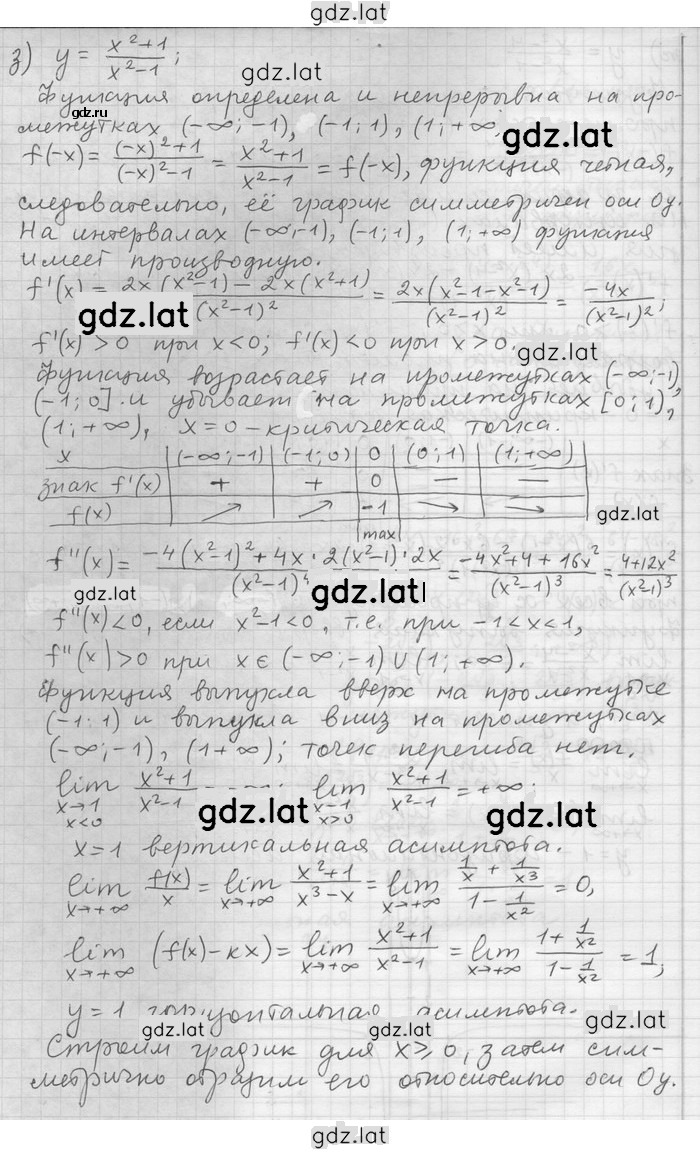 gdz.lat
з) y = (x²+1)/(x²-1);
gdz.lat
gdz.ru
Функция определена и непрерывна на про-
межутках (-∞; -1), (-1; 1), (1; +∞,
gdz.lat
f(-x) = ((-x)²+1)/((-x)²-1) = (x²+1)/(x²-1) = f(-x), функция четная,
следовательно, её график симметричен оси Oy.
На интервалах (-∞;-1), (-1; 1), (1; +∞) функция
имеет производную.
f'(x) = (2x(x²-1) - 2x(x²+1))/(x²-1)² = (2x(x²-1-x²-1))/(x²-1)² = (-4x)/(x²-1)²;
gdz.lat
f'(x) > 0 при x<0; f'(x) < 0 при x > 0.
gdz.lat
Функция возрастает на промежутках (-∞;-1),
(-1; 0] и убывает на промежутках [0; 1),
(1; +∞), x=0 - критическая точка.
x | (-∞; -1) | (-1; 0) | 0 | (0; 1) | (1; +∞)
знак f'(x) | + | + | 0 | - | -
f(x) | ↗ | ↗ | -1 | ↘ | ↘
gdz.lat
max
f''(x) = (-4(x²-1)² + 4x · 2(x²-1) · 2x)/(x²-1)⁴ = (-4x²+4+16x²)/(x²-1)³ = (4+12x²)/(x²-1)³
gdz.lat
f''(x) < 0, если x²-1<0, т.е. при -1<x<1,
f''(x) > 0 при x ∈ (-∞; -1) ∪ (1; +∞).
Функция выпукла вверх на промежутке
(-1; 1) и выпукла вниз на промежутках
(-∞; -1), (1 +∞); точек перегиба нет.
lim x→1 x<0 (x²+1)/(x²-1) lim x→1 x>0 (x²+1)/(x²-1) = +∞;
gdz.lat gdz.lat
x=1 вертикальная асимптота.
lim x→+∞ f(x)/x = lim x→+∞ (x²+1)/(x³-x) = lim x→+∞ (1/x + 1/x³)/(1 - 1/x²) = 0,
lim x→+∞ (f(x)-kx) = lim x→+∞ (x²+1)/(x²-1) = lim x→+∞ (1 + 1/x²)/(1 - 1/x²) = 1;
y=1 горизонтальная асимптота.
gdz.lat gdz.lat gdz.lat
Строим график для x ≥ 0, затем сим-
метрично отразим его относительно оси Oy.
gdz.lat